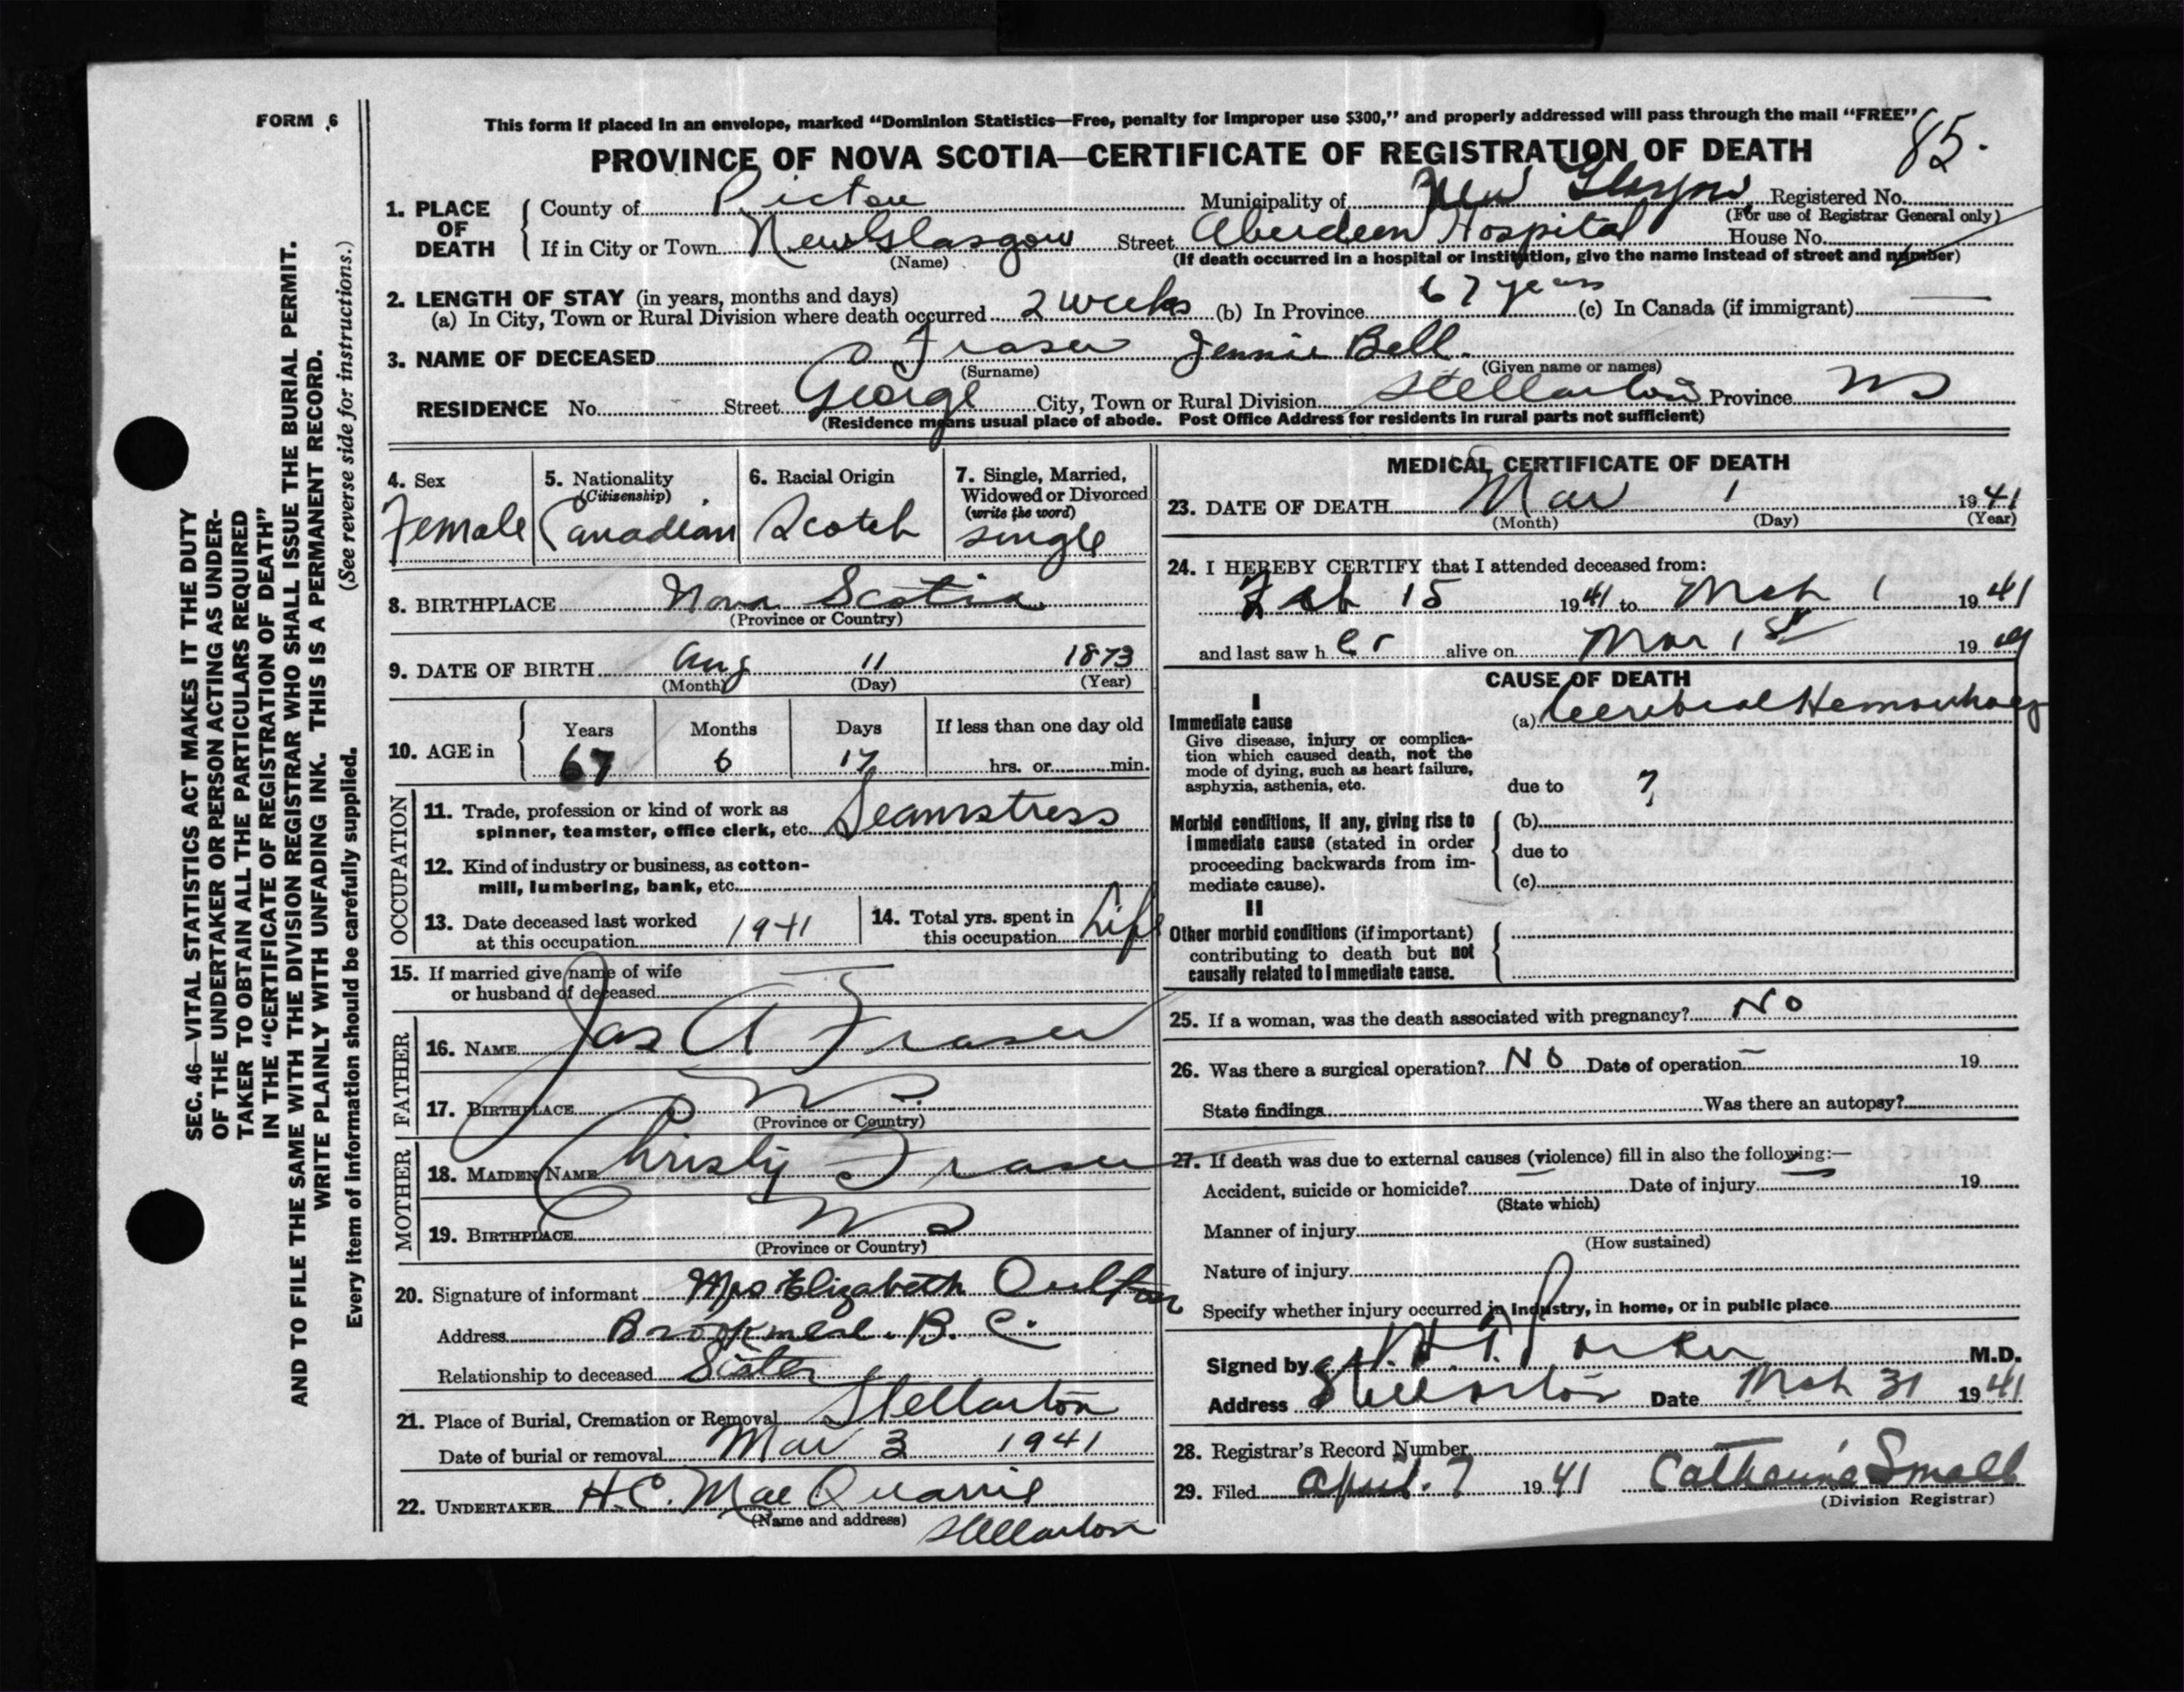 FORM 6
This form if placed in an envelope, marked “Dominion Statistics—Free, penalty for improper use $300,” and properly addressed will pass through the mail “FREE”
85.
PROVINCE OF NOVA SCOTIA—CERTIFICATE OF REGISTRATION OF DEATH
1. PLACE OF DEATH
County of Pictou Municipality of New Glasgow Registered No.
(For use of Registrar General only)
If in City or Town New Glasgow Street Aberdeen Hospital House No.
(Name) (If death occurred in a hospital or institution, give the name instead of street and number)
2. LENGTH OF STAY (in years, months and days)
(a) In City, Town or Rural Division where death occurred 2 weeks (b) In Province 67 years (c) In Canada (if immigrant) —
3. NAME OF DECEASED Fraser Jennie Bell.
(Surname) (Given name or names)
RESIDENCE No. Street George City, Town or Rural Division Stellarton Province NS
(Residence means usual place of abode. Post Office Address for residents in rural parts not sufficient)
4. Sex Female
5. Nationality (Citizenship) Canadian
6. Racial Origin Scotch
7. Single, Married, Widowed or Divorced (write the word) single
8. BIRTHPLACE Nova Scotia
(Province or Country)
9. DATE OF BIRTH Aug 11 1873
(Month) (Day) (Year)
10. AGE in Years Months Days If less than one day old
67 6 17 hrs. or min.
OCCUPATION
11. Trade, profession or kind of work as
spinner, teamster, office clerk, etc. Seamstress
12. Kind of industry or business, as cotton-
mill, lumbering, bank, etc.
13. Date deceased last worked
at this occupation 1941
14. Total yrs. spent in
this occupation Life
15. If married give name of wife
or husband of deceased —
FATHER
16. NAME Jas A Fraser
17. BIRTHPLACE NS
(Province or Country)
MOTHER
18. MAIDEN NAME Christy Fraser
19. BIRTHPLACE NS
(Province or Country)
20. Signature of informant Mrs Elizabeth Oulton
Address B. C.
Relationship to deceased Sister
21. Place of Burial, Cremation or Removal Stellarton
Date of burial or removal Mar 3 1941
22. UNDERTAKER H.C. MacQuarrie
(Name and address) Stellarton
MEDICAL CERTIFICATE OF DEATH
23. DATE OF DEATH Mar 1 1941
(Month) (Day) (Year)
24. I HEREBY CERTIFY that I attended deceased from:
Feb 15 1941 to Mch 1 1941
and last saw h er alive on Mar 1st 19 41
CAUSE OF DEATH
I
Immediate cause (a) Cerebral Hemorrhage
Give disease, injury or complica-
tion which caused death, not the
mode of dying, such as heart failure,
asphyxia, asthenia, etc. due to ?
Morbid conditions, if any, giving rise to (b)
immediate cause (stated in order due to
proceeding backwards from im-
mediate cause). (c)
II
Other morbid conditions (if important)
contributing to death but not
causally related to immediate cause.
25. If a woman, was the death associated with pregnancy? No
26. Was there a surgical operation? NO Date of operation — 19
State findings Was there an autopsy?
27. If death was due to external causes (violence) fill in also the following:—
Accident, suicide or homicide? Date of injury 19
(State which)
Manner of injury
(How sustained)
Nature of injury
Specify whether injury occurred in industry, in home, or in public place
Signed by Parker M.D.
Address Stellarton Date Mch 31 1941
28. Registrar’s Record Number
29. Filed April. 7 1941 Catherine Small
(Division Registrar)
SEC. 46—VITAL STATISTICS ACT MAKES IT THE DUTY
OF THE UNDERTAKER OR PERSON ACTING AS UNDER-
TAKER TO OBTAIN ALL THE PARTICULARS REQUIRED
IN THE “CERTIFICATE OF REGISTRATION OF DEATH”
AND TO FILE THE SAME WITH THE DIVISION REGISTRAR WHO SHALL ISSUE THE BURIAL PERMIT.
WRITE PLAINLY WITH UNFADING INK. THIS IS A PERMANENT RECORD.
(See reverse side for instructions.)
Every item of information should be carefully supplied.